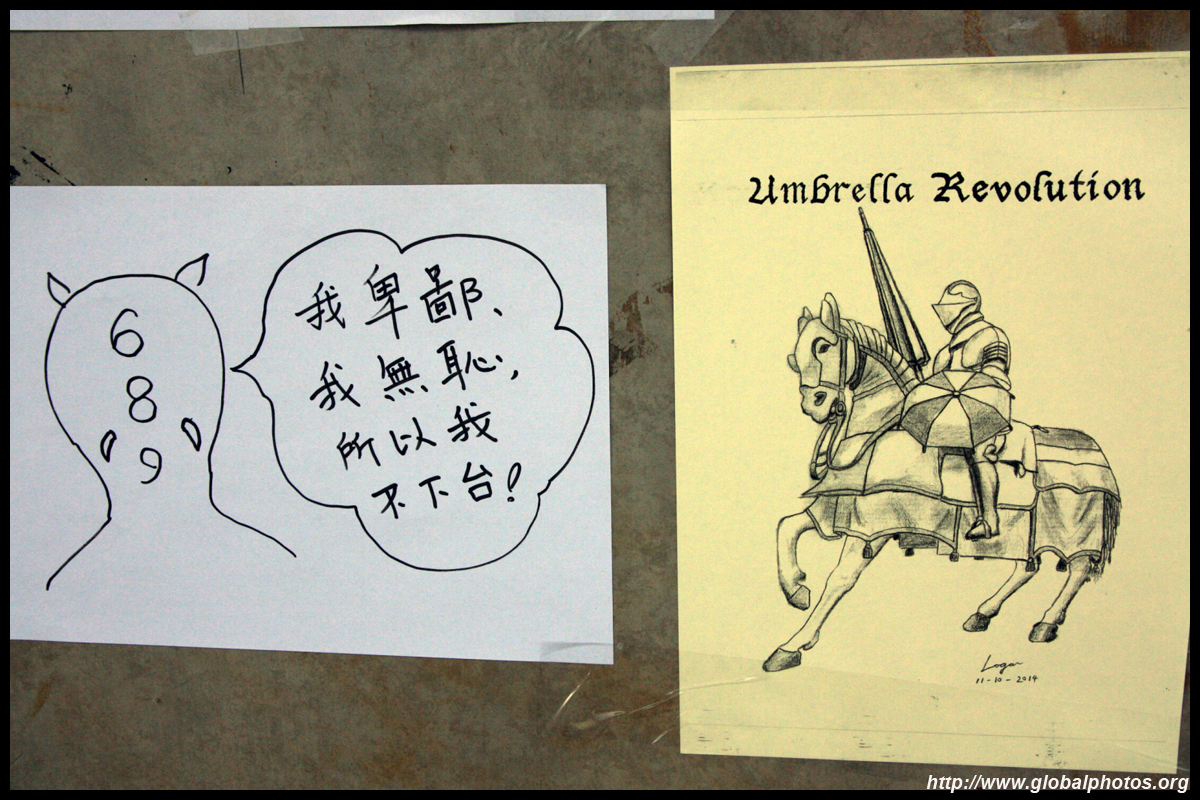 6
8
9
我卑鄙、
我無恥,
所以我
不下台!
Umbrella Revolution
Logan
11-10-2014
http://www.globalphotos.org